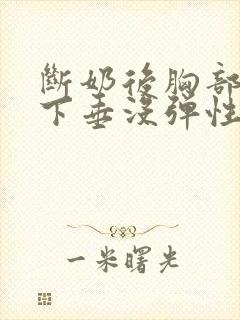 斷奶後胸部
下垂沒彈性
一米曙光